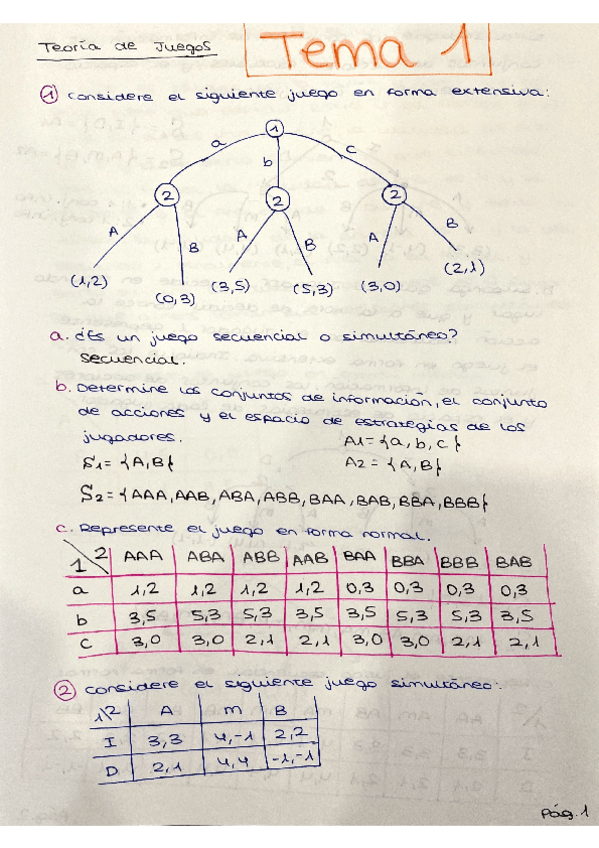 Teoría de Juegos
Tema 1
① Considere el siguiente juego en forma extensiva:
1
a b c
2 2 2
A B A B A B
(1,2) (0,3) (3,5) (5,3) (3,0) (2,1)
a. ¿Es un juego secuencial o simultáneo?
Secuencial.
b. Determine los conjuntos de información, el conjunto
de acciones y el espacio de estrategias de los
jugadores.
A1= {a, b, c}
S1= {A,B}
A2 = {A,B}
S2= {AAA, AAB, ABA, ABB, BAA, BAB, BBA, BBB}
c. Represente el juego en forma normal.
1\2 AAA ABA ABB AAB BAA BBA BBB BAB
a 1,2 1,2 1,2 1,2 0,3 0,3 0,3 0,3
b 3,5 5,3 5,3 3,5 3,5 5,3 5,3 3,5
c 3,0 3,0 2,1 2,1 3,0 3,0 2,1 2,1
② Considere el siguiente juego simultáneo:
1\2 A m B
I 3,3 4,-1 2,2
D 2,1 4,4 -1,-1
Pág. 1